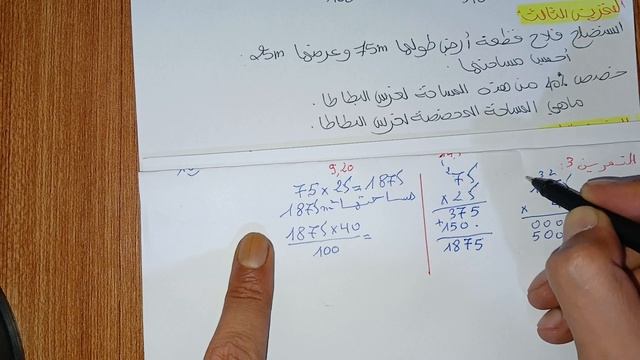 التمرين الثالث:
استصلح فلاح قطعة أرض طولها 75m وعرضها 25m.
أحسب مساحتها.
خصص 40% من هذه المساحة لغرس البطاطا.
ماهي المساحة المخصصة لغرس البطاطا.
التمرين 3:
9,20
75 × 25 = 1875
مساحتها 1875m²
1875 × 40
100
=
2
75
× 25
375
+150.
1875
32
×
000
500